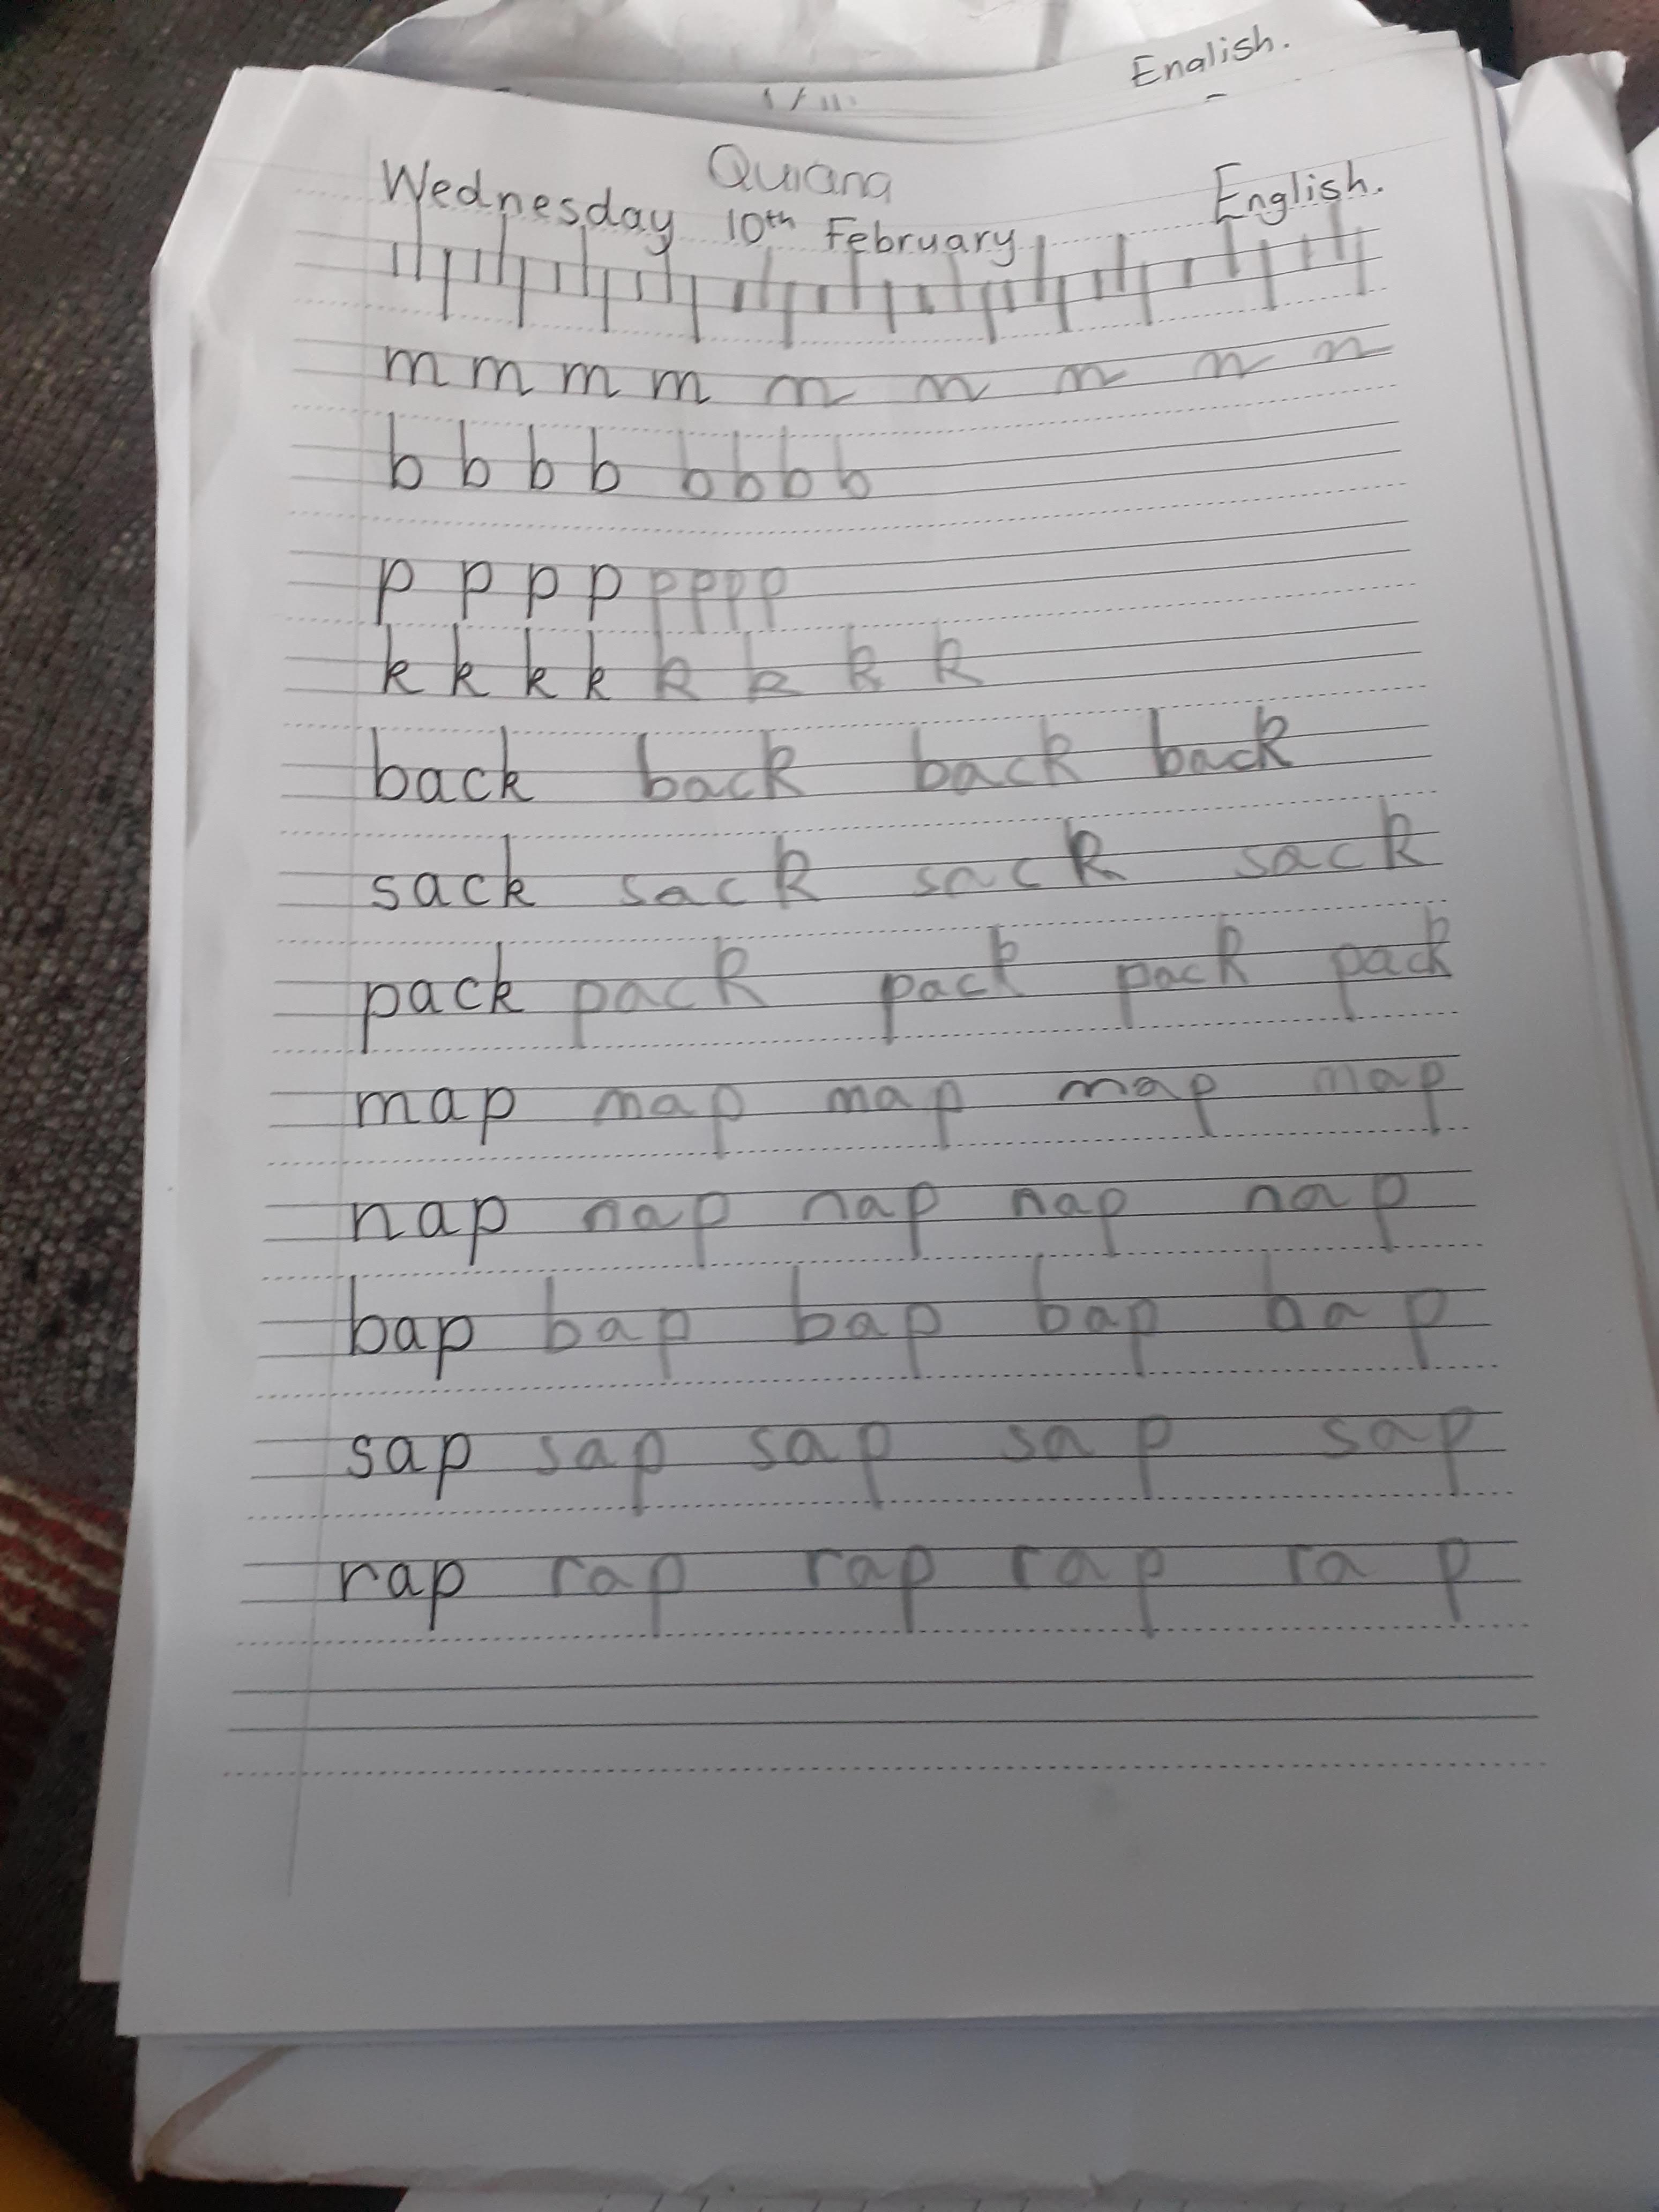 English.
Quiana
Wednesday 10th February English.
m m m m m m m m m
b b b b b b b b
p p p p p p p p
k k k k k k k k
back back back back
sack sack sack sack
pack pack pack pack pack
map map map map map
nap nap nap nap nap
bap bap bap bap bap
sap sap sap sap sap
rap rap rap rap rap